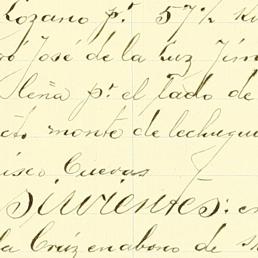 Lozano pr. 57½
ró José de la Luz Jim
Leña pr. el lado de
cto monte de lechugui
isco Cuevas
sirvientes: en
la Cruz en abono de s